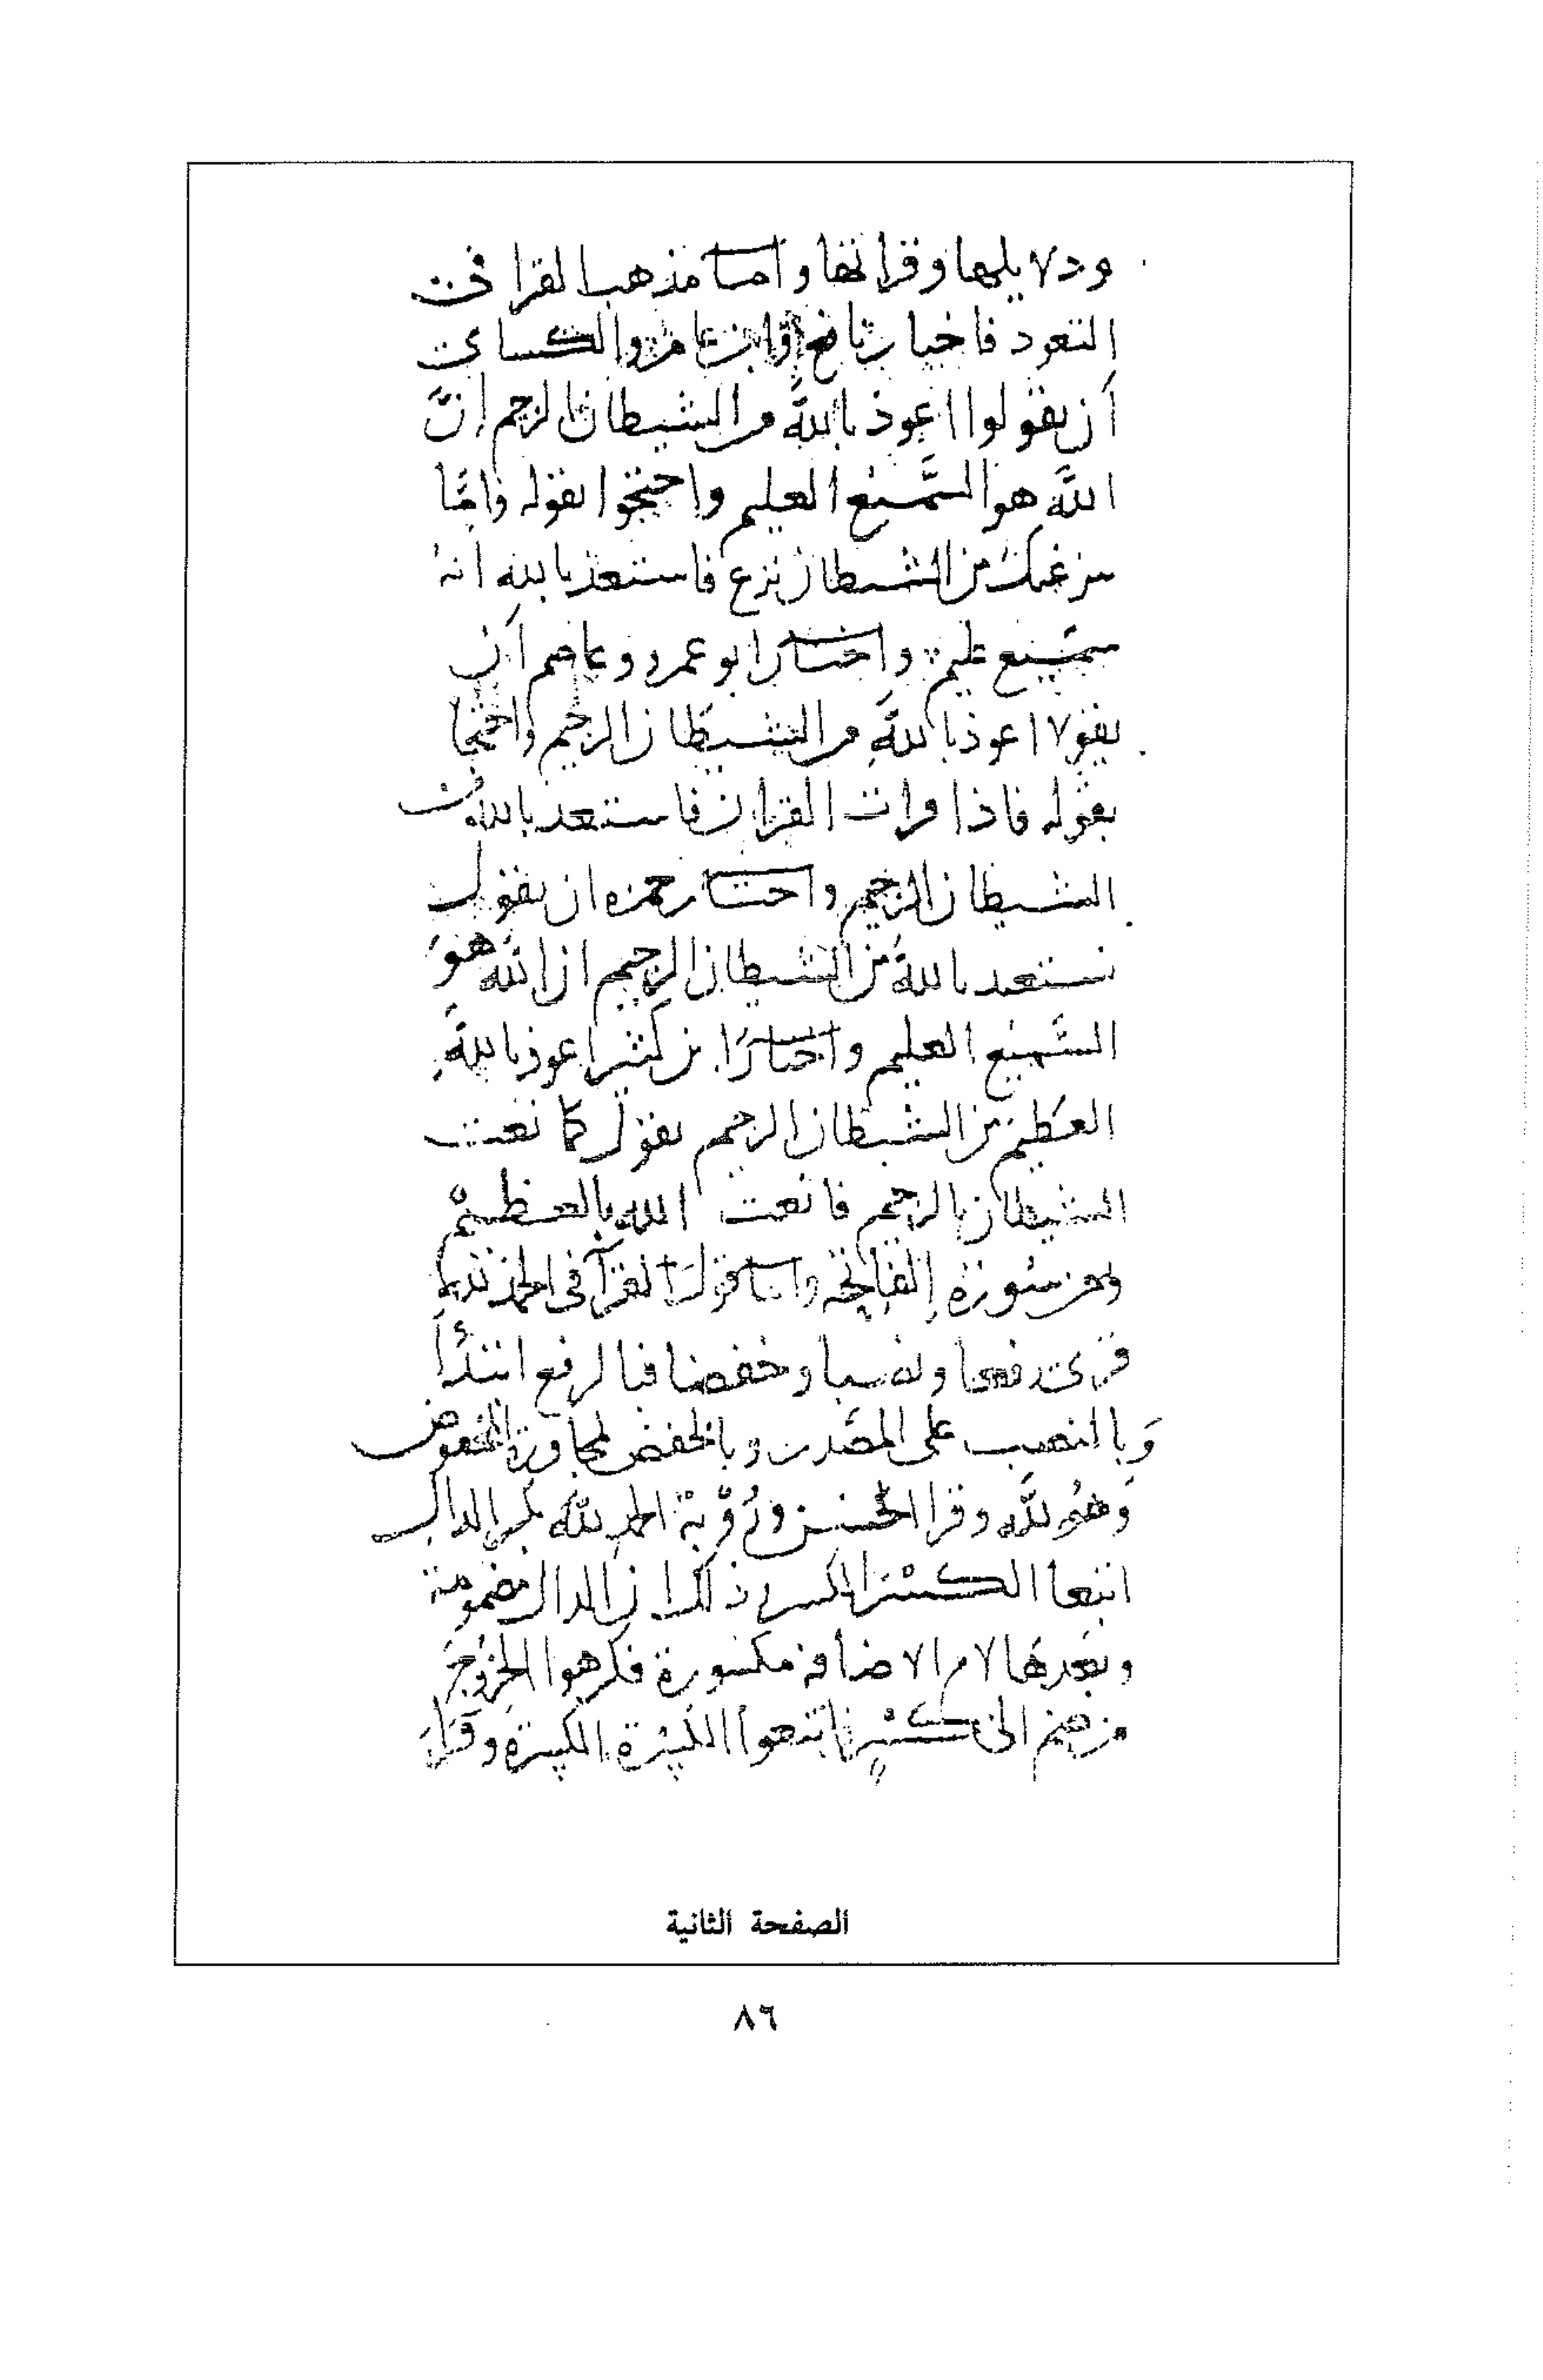 ودلايلها وقراتها واما مذهب القرا في
التعوذ فاختيار نافع وابن عامر والكسائي
أن يقولوا اعوذ بالله من الشيطان الرجيم انَّ
اللَّه هو السَّميع العليم واحتجوا بقوله وامَّا
ينزغنك من الشيطان نزغ فاستعذ بالله انه
سميع عليم واختار ابو عمرو وعاصم أن
يقولا اعوذ بالله من الشيطان الرجيم واحتجا
بقوله فاذا قرات القران فاستعذ بالله من
الشيطان الرجيم واختار حمزه ان يقول
نستعيذ بالله من الشيطان الرجيم ان الله هو
السَّميع العليم واختار ابن كثير اعوذ بالله
العظيم من الشيطان الرجيم يقول كما نعت
الشيطان بالرجيم فانعت الله بالعظيم
ومن سورة الفاتحة واما قول القرآ في الحمد لله
قرى رفعا ونصبا وخفضا فبالرفع ابتدأ
وبالنصب على المصدر وبالخفض لمجاورة المخفوض
وهُو للَّه وقرا الحسن ورُؤبة الحمد للَّه بكسر الدال
اتبعا الكسر الكسر وذلك ان الدال مضمومة
وبعدها لام الاضافه مكسورة فكرهوا الخروج
من ضم الى كسر فاتبعوا الكسرة الكسرة وقرا
الصفحة الثانية
٨٦